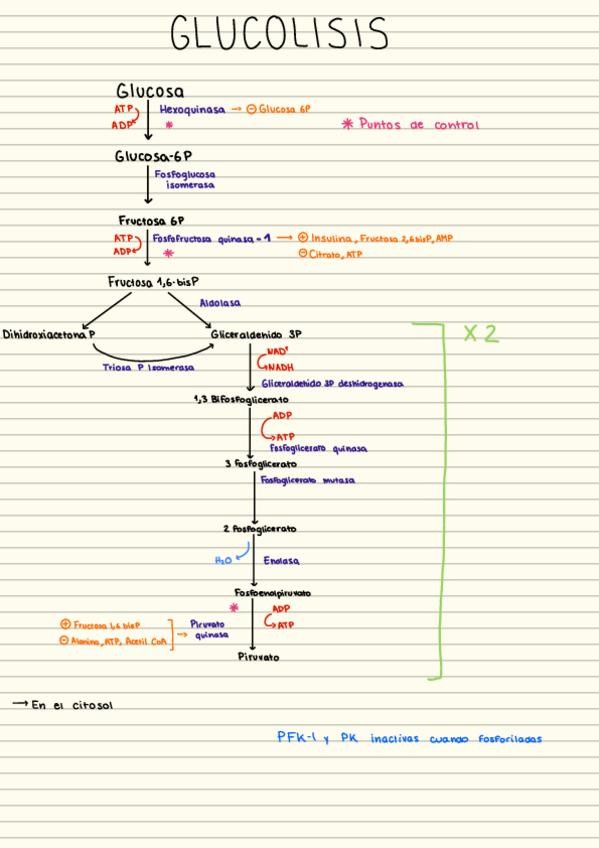 GLUCOLISIS
Glucosa
ATP
ADP
Hexoquinasa → ⊖ Glucosa 6P
*
* Puntos de control
Glucosa-6P
Fosfoglucosa
isomerasa
Fructosa 6P
ATP
ADP
Fosfofructosa quinasa-1 → ⊕ Insulina, Fructosa 2,6 bisP, AMP
*
⊖ Citrato, ATP
Fructosa 1,6-bisP
Aldolasa
Dihidroxiacetona P
Gliceraldehido 3P
X2
Triosa P Isomerasa
NAD⁺
NADH
Gliceraldehido 3P deshidrogenasa
1,3 Bifosfoglicerato
ADP
ATP
Fosfoglicerato quinasa
3 fosfoglicerato
Fosfoglicerato mutasa
2 fosfoglicerato
H₂O
Enolasa
Fosfoenolpiruvato
*
ADP
ATP
⊕ Fructosa 1,6 bisP
⊖ Alanina, ATP, Acetil CoA
→ Piruvato
quinasa
Piruvato
→ En el citosol
PFK-1 y PK inactivas cuando fosforiladas